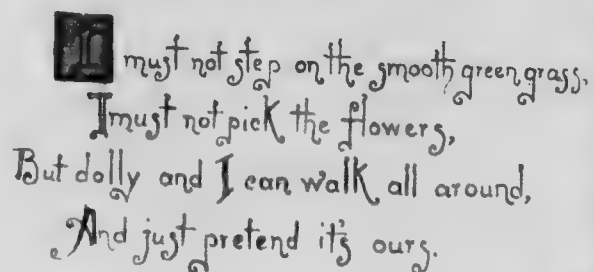 I must not step on the smooth green grass,
I must not pick the flowers,
But dolly and I can walk all around,
And just pretend it's ours.